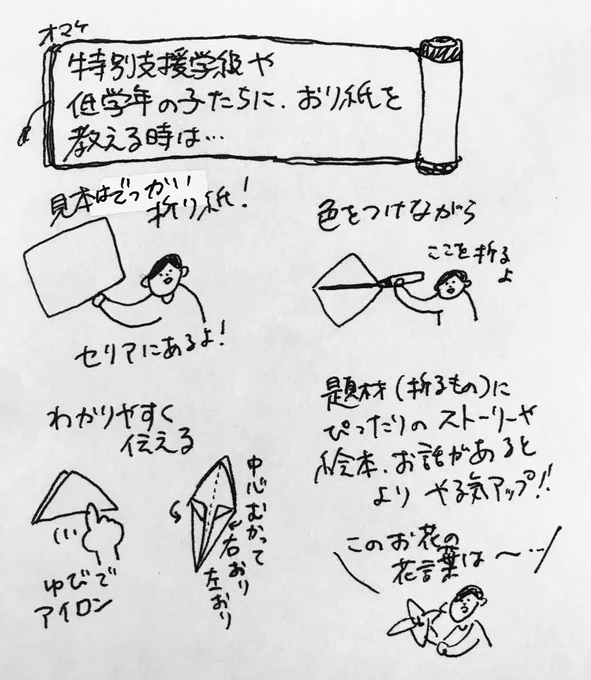 オマケ
特別支援学級や
低学年の子たちに、おり紙を
教える時は…
見本はでっかい
折り紙！
セリアにあるよ！
色をつけながら
ここを折る
よ
わかりやすく
伝える
ゆびで
アイロン
中心むかって
右おり
左おり
題材（折るもの）に
ぴったりの ストーリーや
絵本、お話があると
より やる気アップ！！
このお花の
花言葉は〜…